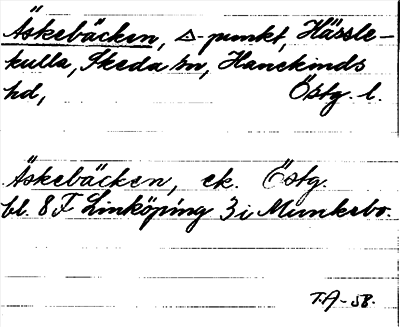 Äskebäcken, △-punkt, Hässle-
kulla, Skeda sn, Hanekinds
hd, Östg. l.
Äskebäcken, ek. Östg.
bl. 8 F Linköping 3 i Munkebo.
T.A-58.